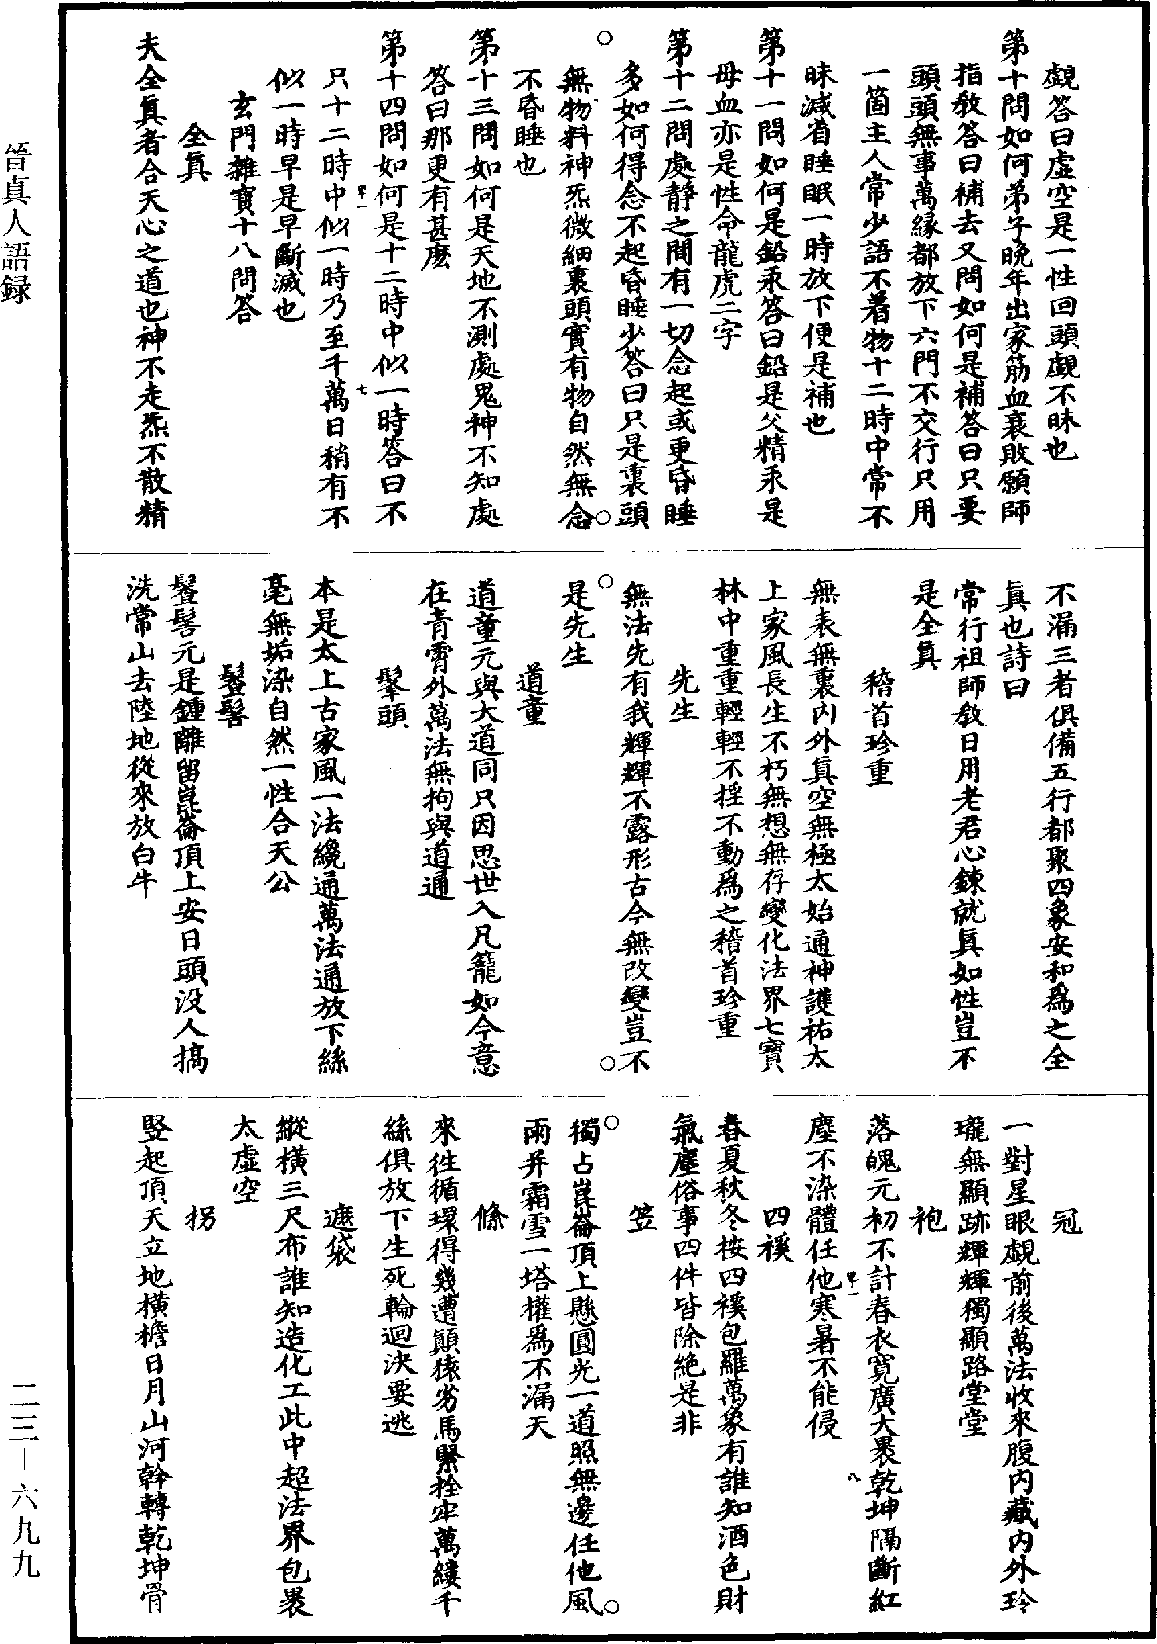 覷答曰虛空是一性回頭覷不昧也
第十問如何弟子晚年出家筋血衰敗願師
指教答曰補去又問如何是補答曰只要
頭頭無事萬緣都放下六門不交行只用
一箇主人常少語不着物十二時中常不
昧減着睡眠一時放下便是補也
第十一問如何是鉛汞答曰鉛是父精汞是
母血亦是性命龍虎二字
第十二問處靜之間有一切念起或更昏睡
多如何得念不起昏睡少答曰只是裏頭
無物料神炁微細裏頭實有物自然無念
不昏睡也
第十三問如何是天地不測處鬼神不知處
答曰那更有甚麽
第十四問如何是十二時中似一時答曰不
只十二時中似一時乃至千萬日稍有不
似一時早是早斷滅也
玄門雜寶十八問答
全真
夫全真者合天心之道也神不走炁不散精
不漏三者俱備五行都聚四象安和為之全
真也詩曰
常行祖師教日用老君心鍊就真如性豈不
是全真
稽首珍重
無表無裏內外真空無極太始通神護祐太
上家風長生不朽無想無存變化法界七寶
林中重重輕輕不揺不動為之稽首珍重
先生
無法先有我輝輝不露形古今無改變豈不
是先生
道童
道童元與大道同只因思世入凡籠如今意
在青霄外萬法無拘與道通
髼頭
本是太上古家風一法纔通萬法通放下絲
毫無垢染自然一性合天公
鬟髻
鬟髻元是鍾離留崑崙頂上安日頭没人搞
洗常山去陸地從來放白牛
冠
一對星眼覷前後萬法收來腹內藏內外玲
瓏無顯跡輝輝獨顯路堂堂
袍
落魄元初不計春衣寬廣大褁乾坤隔斷紅
塵不染體任他寒暑不能侵
四襆
春夏秋冬按四襆包羅萬象有誰知酒色財
氣塵俗事四件皆除絶是非
笠
獨占崑崙頂上懸圓光一道照無邊任他風
雨并霜雪一塔權為不漏天
絛
來往循環得幾遭顛猿劣馬緊拴牢萬縷千
絲俱放下生死輪迴決要逃
遮袋
縱横三尺布誰知造化工此中超法界包褁
太虛空
拐
竪起頂天立地横擔日月山河幹轉乾坤骨
晉真人語録
二三—六九九